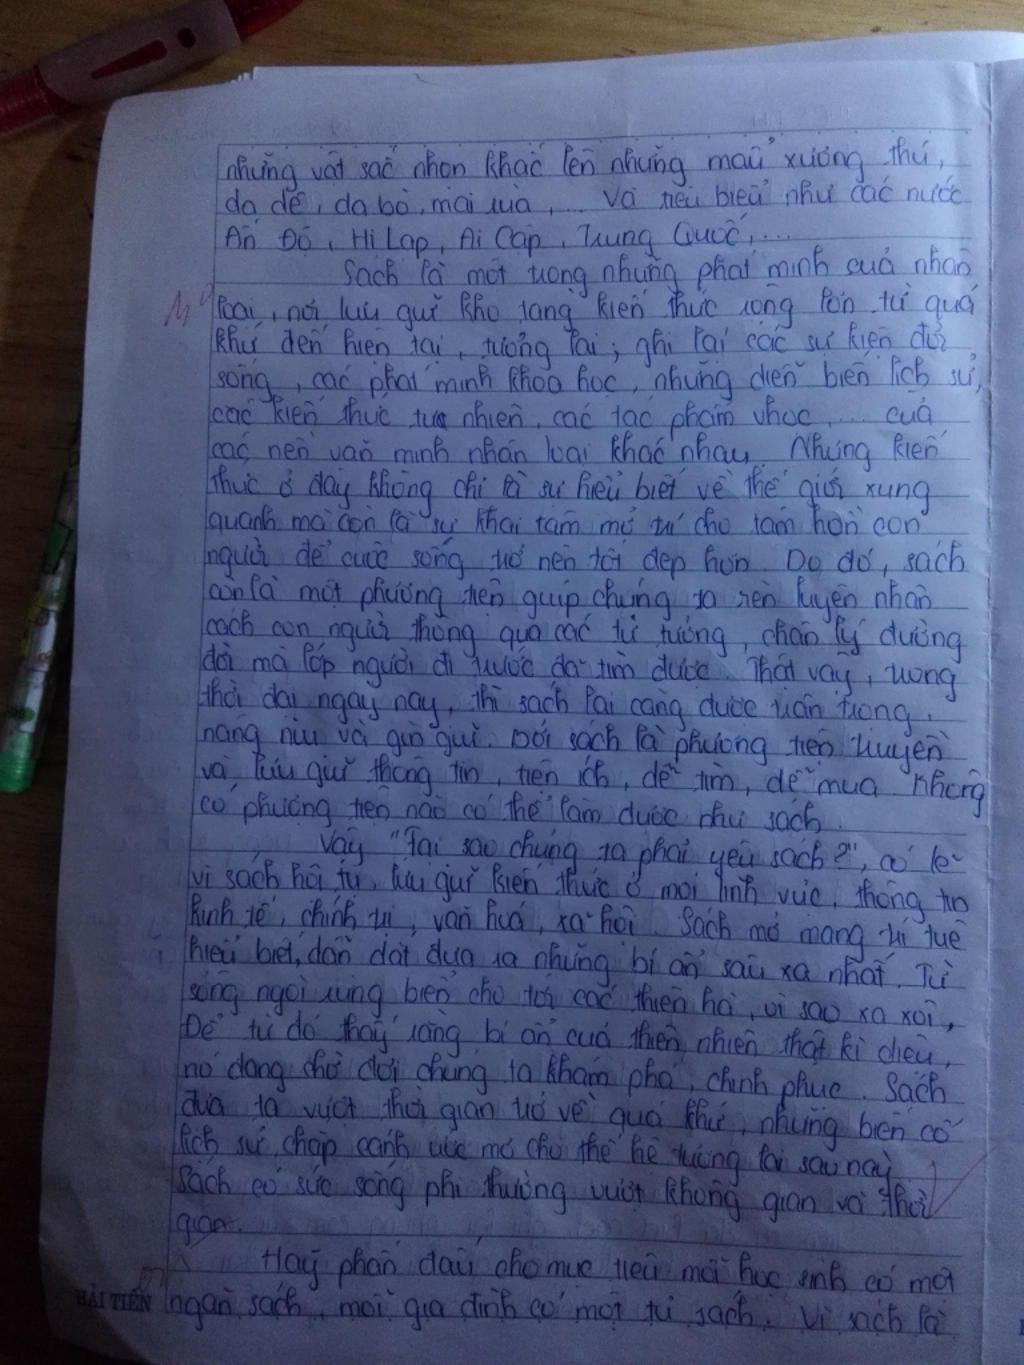 những vật sắc nhọn khắc lên những mẩu xương thú,
da dê, da bò, mai rùa, ... Và tiêu biểu như các nước
Ấn Độ, Hi Lạp, Ai Cập, Trung Quốc, ...
Sách là một trong những phát minh của nhân
loại, nó lưu giữ kho tàng kiến thức rộng lớn từ quá
khứ đến hiện tại, tương lai; ghi lại các sự kiện đời
sống, các phát minh khoa học, những diễn biến lịch sử,
các kiến thức tự nhiên, các tác phẩm vhọc, ... của
các nền văn minh nhân loại khác nhau. Những kiến
thức ở đây không chỉ là sự hiểu biết về thế giới xung
quanh mà còn là sự khai tâm mở trí cho tâm hồn con
người để cuộc sống trở nên tốt đẹp hơn. Do đó, sách
còn là một phương tiện giúp chúng ta rèn luyện nhân
cách con người thông qua các tư tưởng, chân lý đường
đời mà lớp người đi trước đã tìm được. Thật vậy, trong
thời đại ngày nay, thì sách lại càng được trân trọng,
nâng niu và gìn giữ. Bởi sách là phương tiện truyền
và lưu giữ thông tin, tiện ích, dễ tìm, dễ mua. Không
có phương tiện nào có thể làm được như sách.
Vậy "Tại sao chúng ta phải yêu sách?", có lẽ
vì sách hội tụ, lưu giữ kiến thức ở mọi lĩnh vực, thông tin
kinh tế, chính trị, văn hoá, xã hội. Sách mở mang trí tuệ
hiểu biết, dẫn dắt đưa ra những bí ẩn sâu xa nhất. Từ
sông ngòi rừng biển cho tới các thiên hà, vì sao xa xôi,
Để từ đó thấy rằng bí ẩn của thiên nhiên thật kì diệu,
nó đang chờ đợi chúng ta khám phá, chinh phục. Sách
đưa ta vượt thời gian trở về quá khứ, những biến cố
lịch sử, chắp cánh ước mơ cho thế hệ tương lai sau này.
Sách có sức sống phi thường vượt không gian và thời
gian.
Hãy phấn đấu cho mục tiêu mỗi học sinh có một
HẢI TIẾN ngăn sách, mỗi gia đình có một tủ sách. Vì sách là